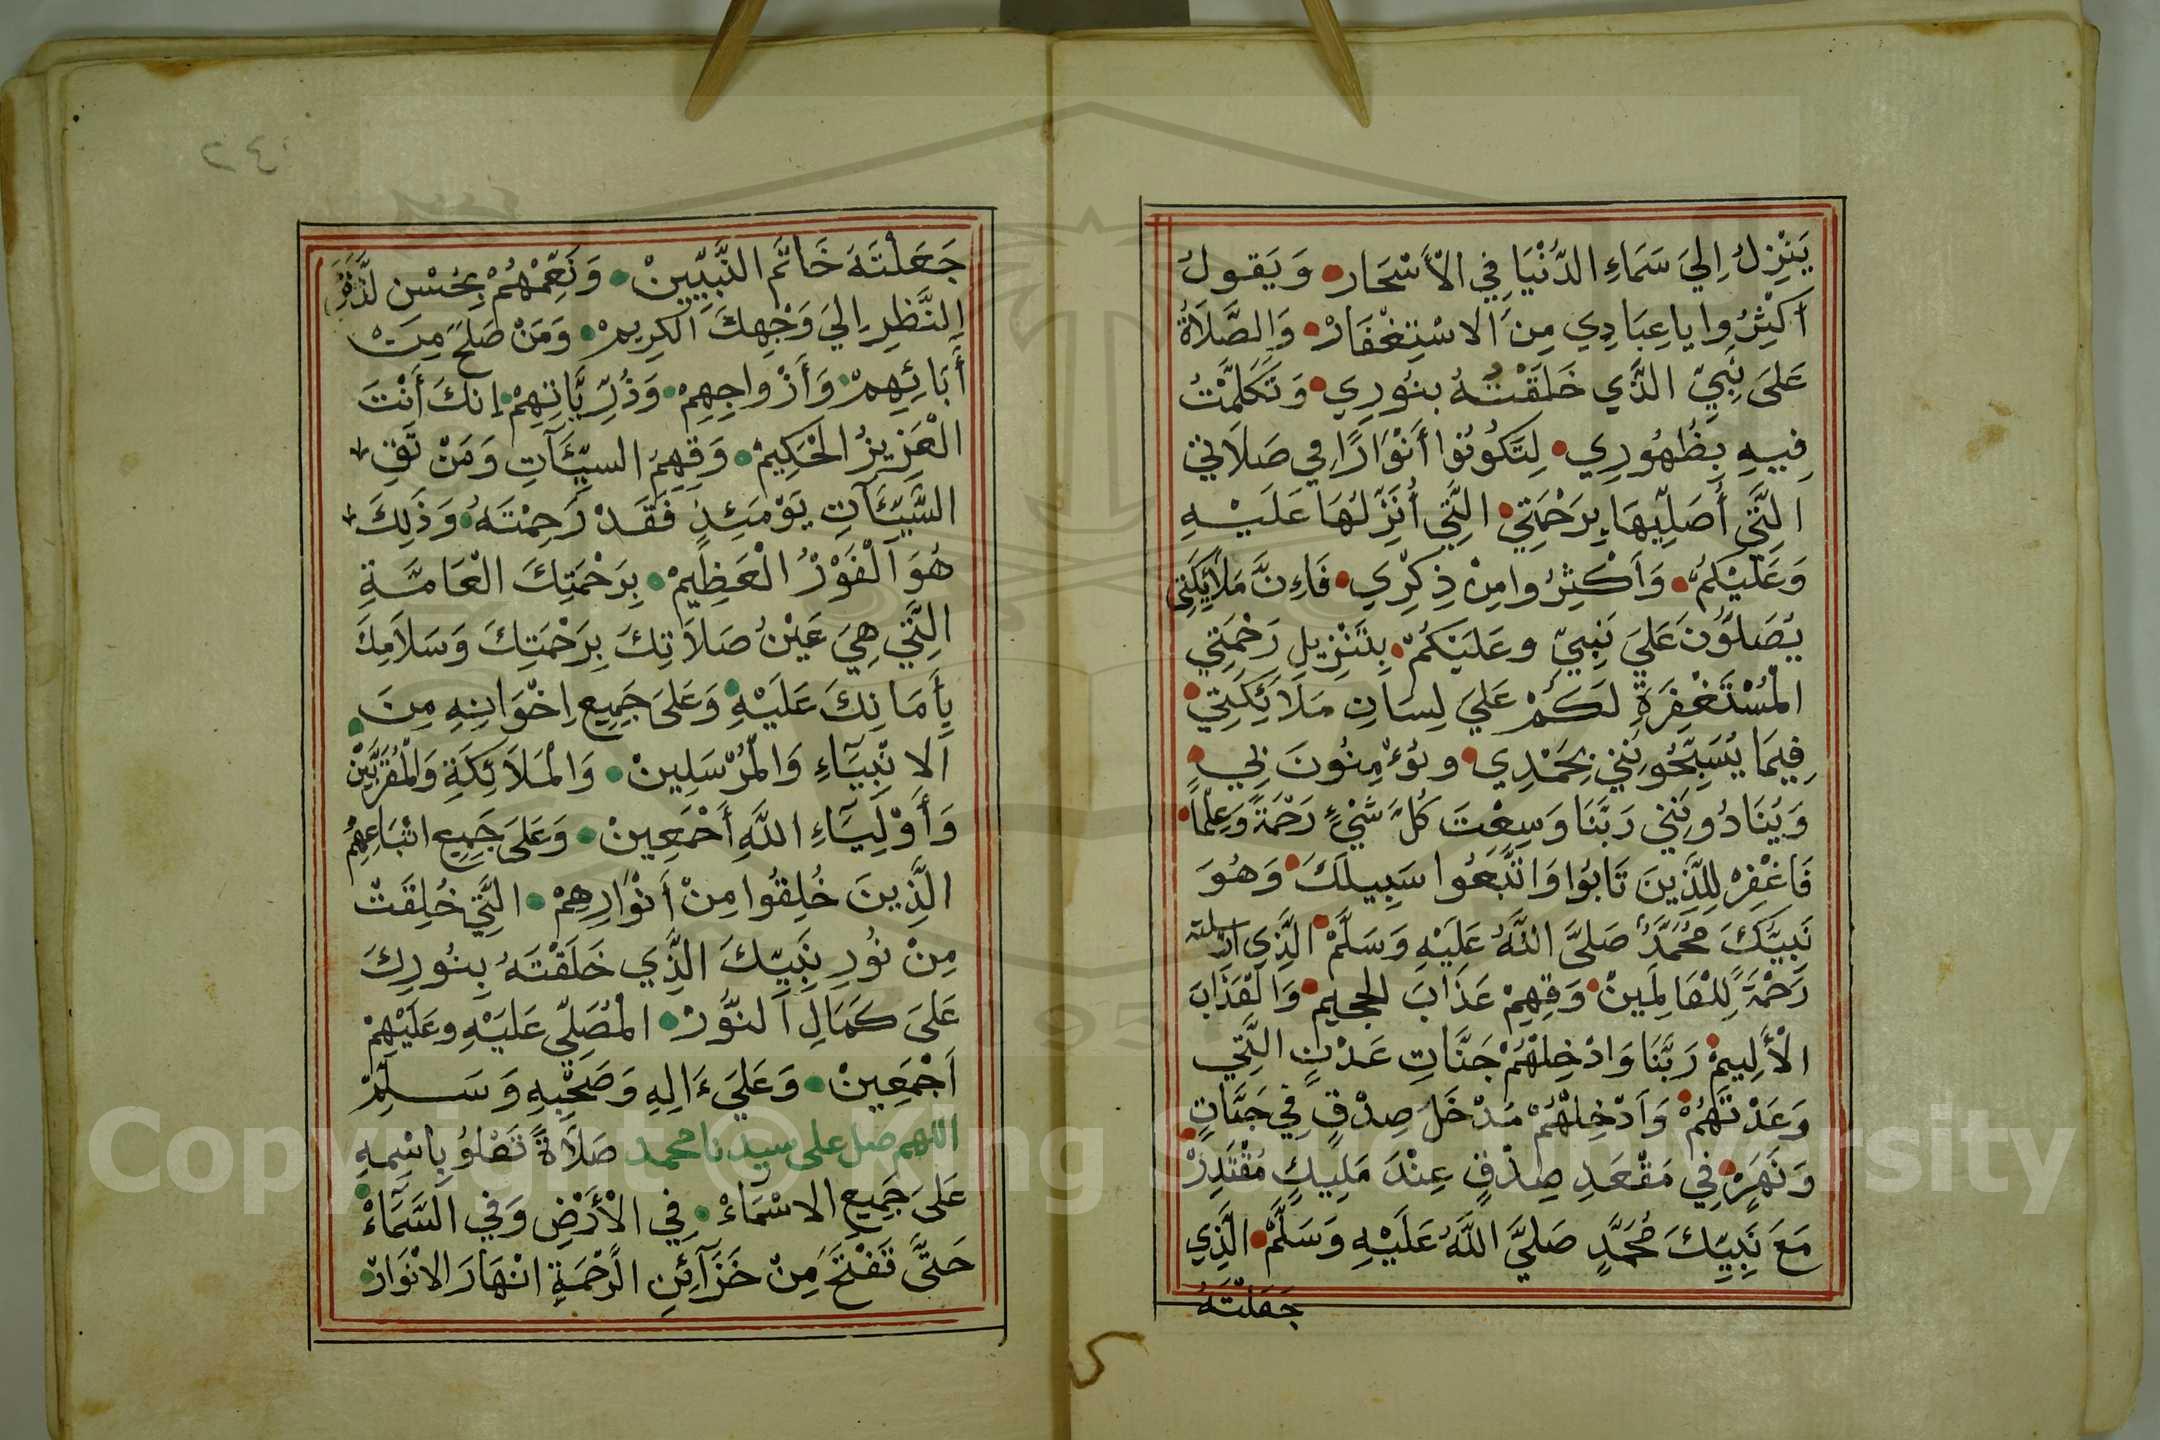 يَنْزِلُ اِلَيَ سَمَاءِ الدُّنْيَا فِي الْأَسْحَار وَيَقولُ
أَكْثِرُوا يا عِبَادِي مِنَ الاسْتِغْفَارْ وَالصَّلَاةُ
عَلىَ نَبِيِّ الذَّي خَلَقْتُهُ بنُورِي وَتَكَلَّمْتُ
فِيهِ بِظُهُورِي لِتَكُونُوا أَنْوَارًا فِي صَلَاتي
الَّتَّيِ أُصَلِّيهَا بِرَحْمَتِي الَّتِي أُنَزِّلُهَا عَلَيْهِ
وَعَلَيْكُمْ وَاَكْثِرُوا مِنْ ذِكْرِي فَاءِنَّ مَلَائِكَتِي
يُصَلُّونَ عَلَيَ نَبِيِّ وعَلَيْكُمْ بِتَنْزِيلِ رَحْمَتِي
الْمُسْتَغْفِرَةِ لَكُمْ عَلَيَ لِسَانِ مَلَائِكَتِي
فِيمَا يُسَبِّحُونَنِي بِحَمْدِي ويُؤْمِنُونَ بِي
وَيُنَادُونَنِي رَبَّنَا وَسِعْتَ كُلَّ شَيْءٍ رَحْمَةً وَعِلْماً
فَاغْفِرْ لِلَّذِينَ تَابُوا وَاتَّبَعُوا سَبِيلَكَ وَهُوَ
نَبِيُّكَ مُحَمَّدٌ صَلىَّ اللَّهُ عَلَيْهِ وَسَلَّمْ الَّذِي ارسلته
رَحْمَةً لِلْعَالَمِينْ وَقِهِمْ عَذَابَ الجحِيم وَالْعَذَابَ
الْأَلِيمْ رَبَّنَا وَادْخِلْهُمْ جَنَّاتِ عَدْنٍ الَّتَّيِ
وَعَدْتَهُمْ وَاَدْخِلْهُمْ مُدْخَلَ صِدْقٍ فِي جَنَّاتٍ
وَنَهَرٍ فِي مَقْعَدِ صِدْقٍ عِنْدَ مَلِيكٍ مُقْتَدِرْ
مَعَ نَبِيِّكَ مُحَمَّدٍ صَلىَّ اللَّهُ عَلَيْهِ وَسَلَّمْ الَّذِي
جَعَلْتَهُ
٤٢
جَعَلْتَهُ خَاتَمَ النَّبِيِّينْ وَنَعِّمْهُمْ بِحُسْنِ لَذَّةِ
النَّظَرِ اِلَيَ وَجْهِكَ الْكَرِيمْ وَمَنْ صَلَحَ مِنْ
أَبَائِهِمْ وَأَزْواجِهِمْ وَذُرِّيَّاتِهِمْ إنكَ أَنْتَ
الْعَزِيزُ الْحَكِيمْ وَقِهِمُ السَيِّئَآتِ وَمَنْ تَقِ
السَّيِّئَآتِ يَوْمَئِذٍ فَقَدْ رَحِمْتَهُ وَذَلِكَ
هُوَ اَلْفَوْزُ الْعَظِيمْ بِرَحْمَتِكَ الْعَامَّةِ
الَّتَّي هِيَ عَيْنُ صَلَاتِكَ بِرَحْمَتِكَ وَسَلَامِكَ
بِأَمَانِكَ عَلَيْهِ وَعَلىَ جَمِيعِ اِخْوَانِهِ مِنَ
الانْبِيَآءِ وَالْمُرْسَلِينْ وَالْمَلَائِكَةِ وَالْمُقَرَّبِيْن
وَأَوْلِيَآءِ اللَّهِ أَجْمَعِينْ وَعَلىَ جَمِيعِ اتْبَاعِهِمْ
الَّذِينَ خُلِقُوا مِنْ أَنْوَارِهِمْ الَّتَّيِ خُلِقَتْ
مِنْ نُورِ نَبِيِّكَ الَّذَّي خَلَقْتَهُ بِنُورِكَ
عَلىَ كَمَالِ اَلنُّورْ الْمُصَلِّي عَلَيْهِ وعَلَيْهِمْ
اَجْمَعِينْ وَعَلَيَ ءَالِهِ وَصَحْبِهِ وَسَلِّمْ
اللهم صل على سيدنا محمد صَلَاةً تَعْلُو بِاِسْمِهِ
عَلىَ جَمِيعِ الاسْمَاءْ فِي الْأَرْضِ وَفِي السَّمَآءْ
حَتَّى تَفْتَحَ مِنْ خَزَآئِنِ الرَّحْمَةِ انْهَارَ الانْوَارْ
Copyright © King Saud University
1957